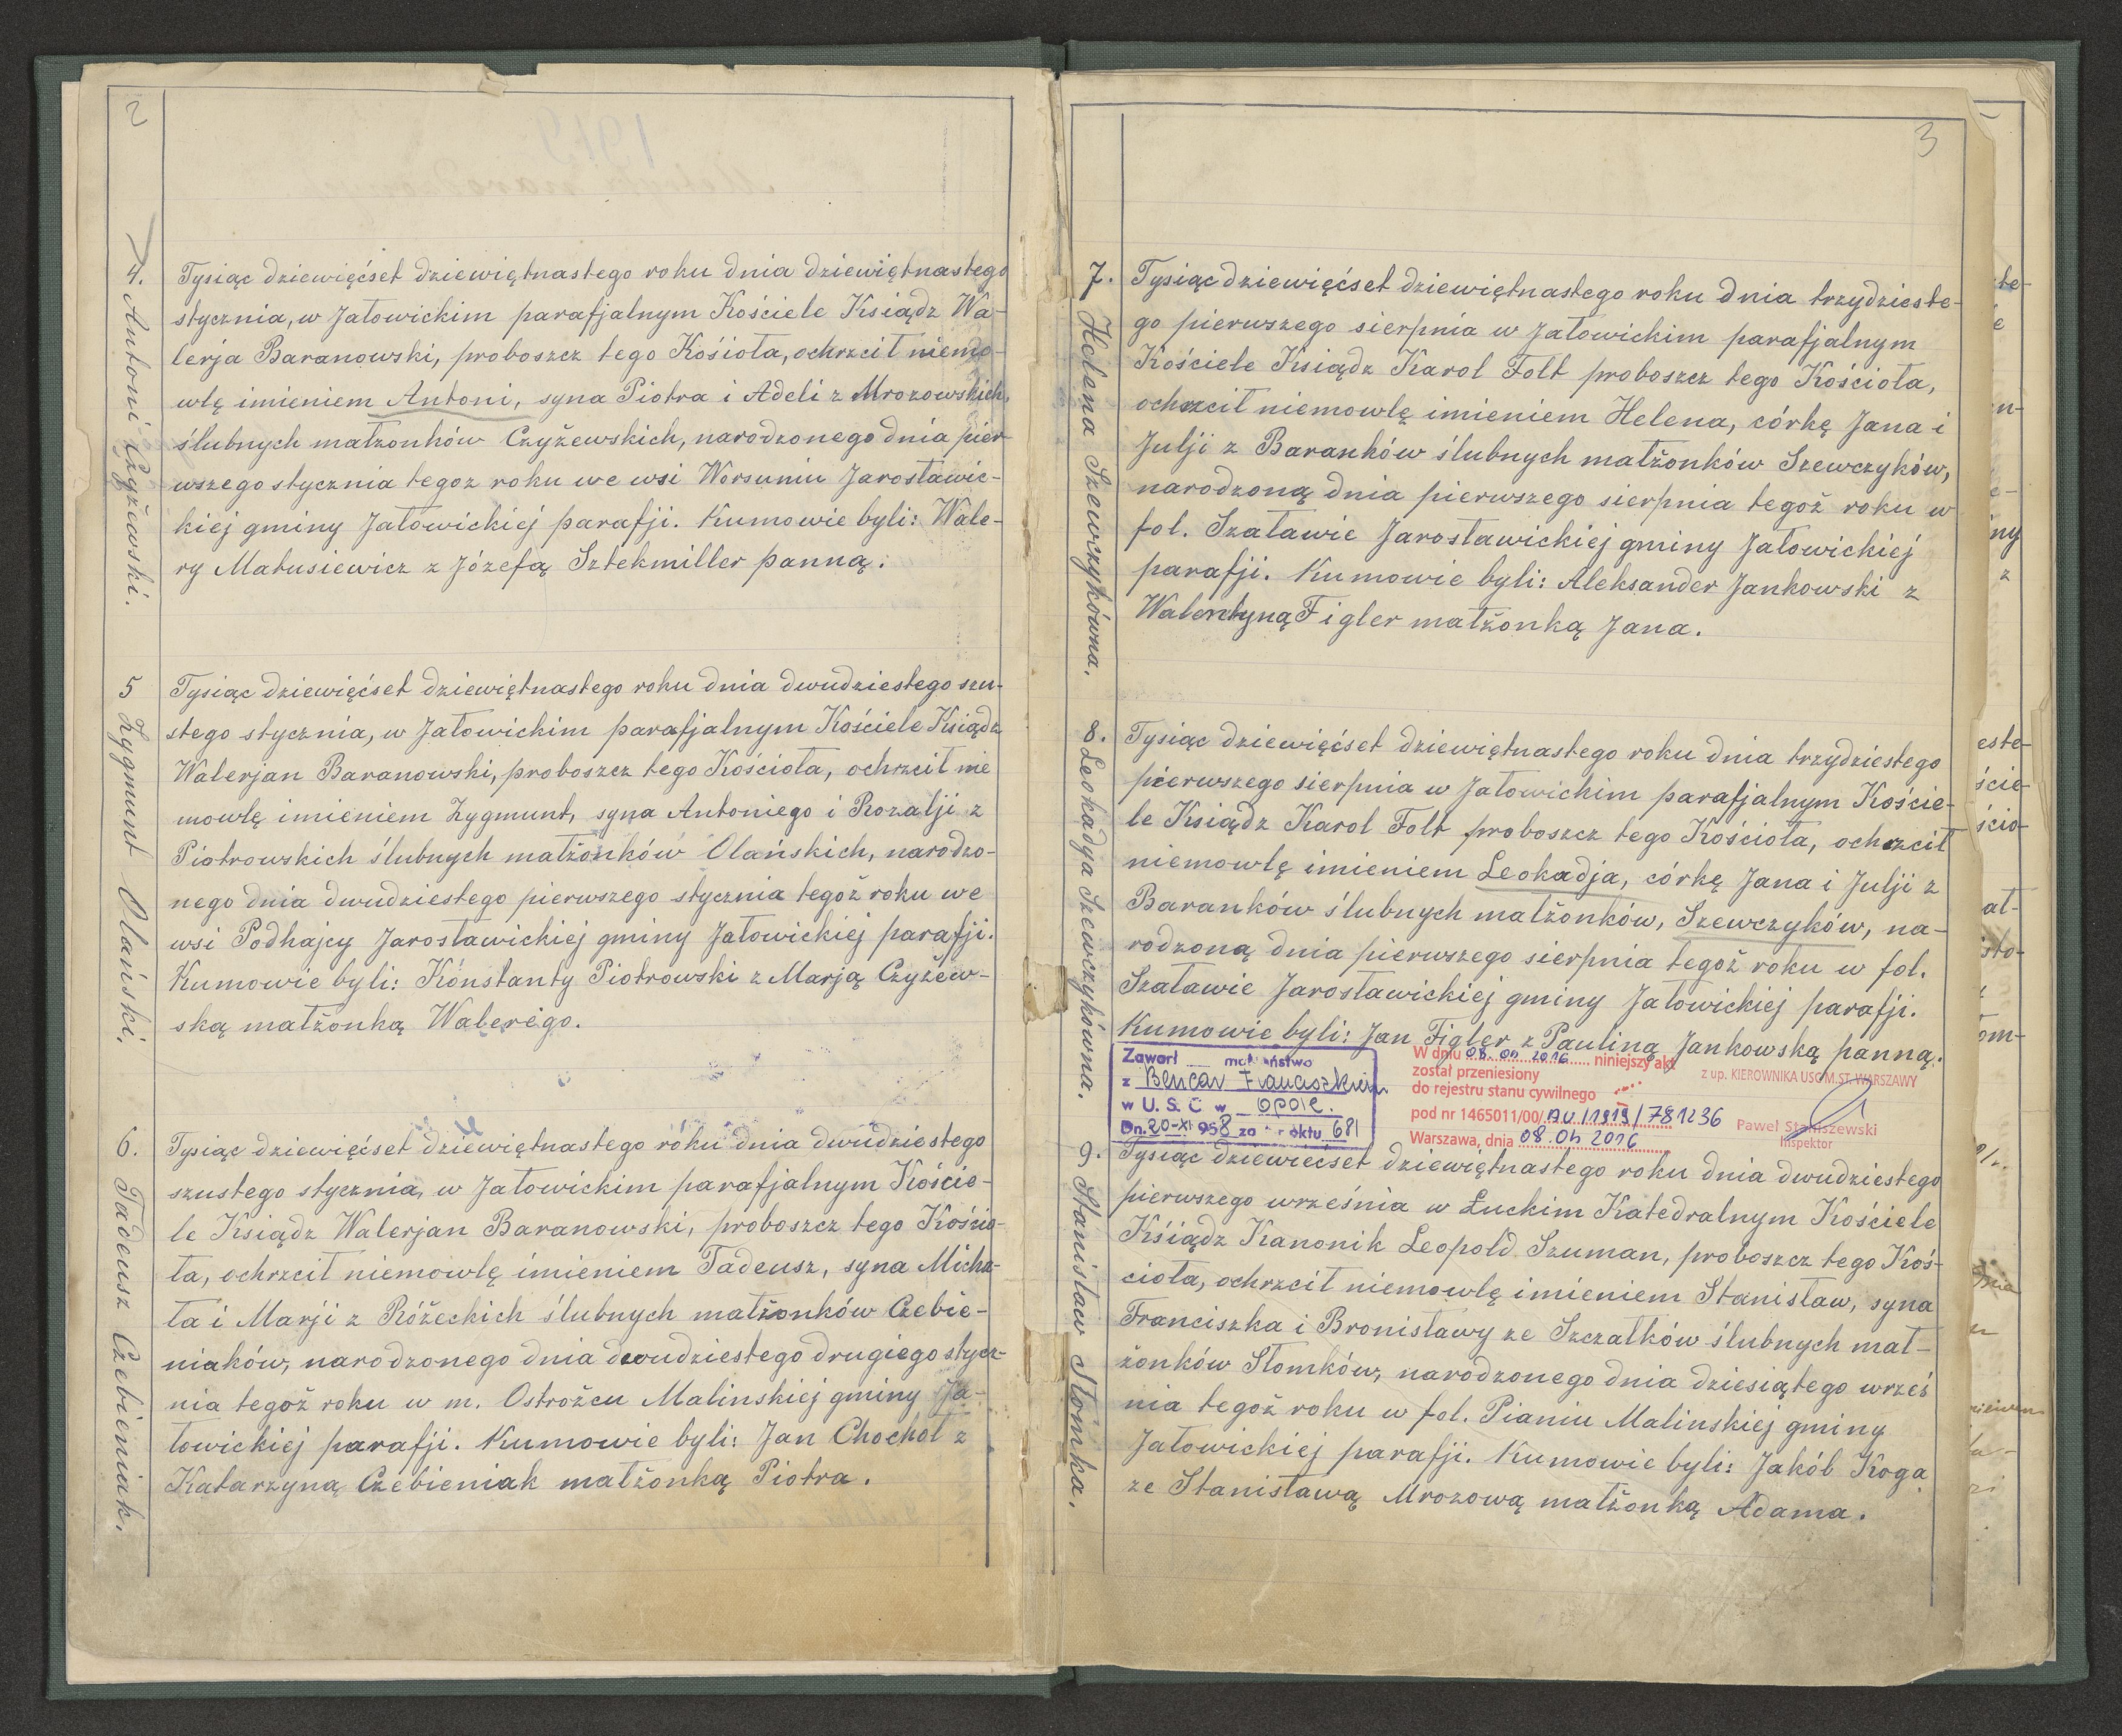 2
4. Antoni Czyżewski.
Tysiąc dziewięćset dziewiętnastego roku dnia dziewiętnastego
stycznia, w Jałowickim parafjalnym Kościele Ksiądz Wa-
lerja Baranowski, proboszcz tego Kościoła, ochrzcił niemo-
wlę imieniem Antoni, syna Piotra i Adeli z Mrozowskich,
ślubnych małżonków Czyżewskich, narodzonego dnia pier-
wszego stycznia tegoz roku we wsi Worsuniu Jarosławic-
kiej gminy Jałowickiej parafji. Kumowie byli: Wale-
ry Matusiewicz z Józefą Sztekmiller panną.
5 Zygmunt Olański.
Tysiąc dziewięćset dziewiętnastego roku dnia dwudziestego szu-
stego stycznia, w Jałowickim parafjalnym Kościele Ksiądz
Walerjan Baranowski, proboszcz tego Kościoła, ochrzcił nie
mowlę imieniem Zygmunt, syna Antoniego i Rozalji z
Piotrowskich ślubnych małżonków Olańskich, narodzo-
nego dnia dwudziestego pierwszego stycznia tegoż roku we
wsi Podhajcy Jarosławickiej gminy Jałowickiej parafji.
Kumowie byli: Konstanty Piotrowski z Marją Czyżew-
ską małżonką Walerego.
6. Tadeusz Czebieniak.
Tysiąc dziewięćset dziewiętnastego roku dnia dwudziestego
szustego stycznia, w Jałowickim parafjalnym Koście-
le Ksiądz Walerjan Baranowski, proboszcz tego Kościo-
ła, ochrzcił niemowlę imieniem Tadeusz, syna Micha-
ła i Marji z Różeckich ślubnych małżonków Czebie-
niaków, narodzonego dnia dwudziestego drugiego stycz-
nia tegoż roku w m. Ostrożcu Malinskiej gminy Ja-
łowickiej parafji. Kumowie byli: Jan Chochoł z
Katarzyną Czebieniak małżonką Piotra.
3
7. Helena Szewczykówna.
Tysiąc dziewięćset dziewiętnastego roku dnia trzydzieste-
go pierwszego sierpnia w Jałowickim parafjalnym
Kościele Ksiądz Karol Folt proboszcz tego Kościoła,
ochrzcił niemowlę imieniem Helena, córkę Jana i
Julji z Baranków ślubnych małżonków Szewczyków,
narodzoną dnia pierwszego sierpnia tegoż roku w
fol. Szaławie Jarosławickiej gminy Jałowickiej
parafji. Kumowie byli: Aleksander Jankowski z
Walentyną Figler małżonką Jana.
8. Leokadya Szewczykówna.
Tysiąc dziewięćset dziewiętnastego roku dnia trzydziestego
pierwszego sierpnia w Jałowickim parafjalnym Koście-
le Ksiądz Karol Folt proboszcz tego Kościoła, ochrzcił
niemowlę imieniem Leokadja, córkę Jana i Julji z
Baranków ślubnych małżonków, Szewczyków, na-
rodzoną dnia pierwszego sierpnia tegoż roku w fol.
Szaławie Jarosławickiej gminy Jałowickiej parafji.
Kumowie byli: Jan Figler z Pauliną Jankowską panną.
Zawarł małżeństwo
z Bencar Franciszkiem
w U. S. C w Opole.
Dn. 20-XI 958 za nr aktu 681
W dniu 08.04 2016 niniejszy akt
został przeniesiony
do rejestru stanu cywilnego
pod nr 1465011/00/AU/1919/781236
Warszawa, dnia 08.04 2016
z up. KIEROWNIKA USC M.ST. WARSZAWY
Paweł Staniszewski
Inspektor
9. Stanisław Słomka.
Tysiąc dziewiećset dziewiętnastego roku dnia dwudziestego
pierwszego września w Łuckim Katedralnym Kościele
Ksiądz Kanonik Leopold Szuman, proboszcz tego Koś-
cioła, ochrzcił niemowlę imieniem Stanisław, syna
Franciszka i Bronisławy ze Szczałków ślubnych mał-
żonków Słomków, narodzonego dnia dziesiątego wrześ
nia tegoż roku w fol. Pianiu Malinskiej gminy
Jałowickiej parafji. Kumowie byli: Jakób Koga
ze Stanisławą Mrozową małżonką Adama.